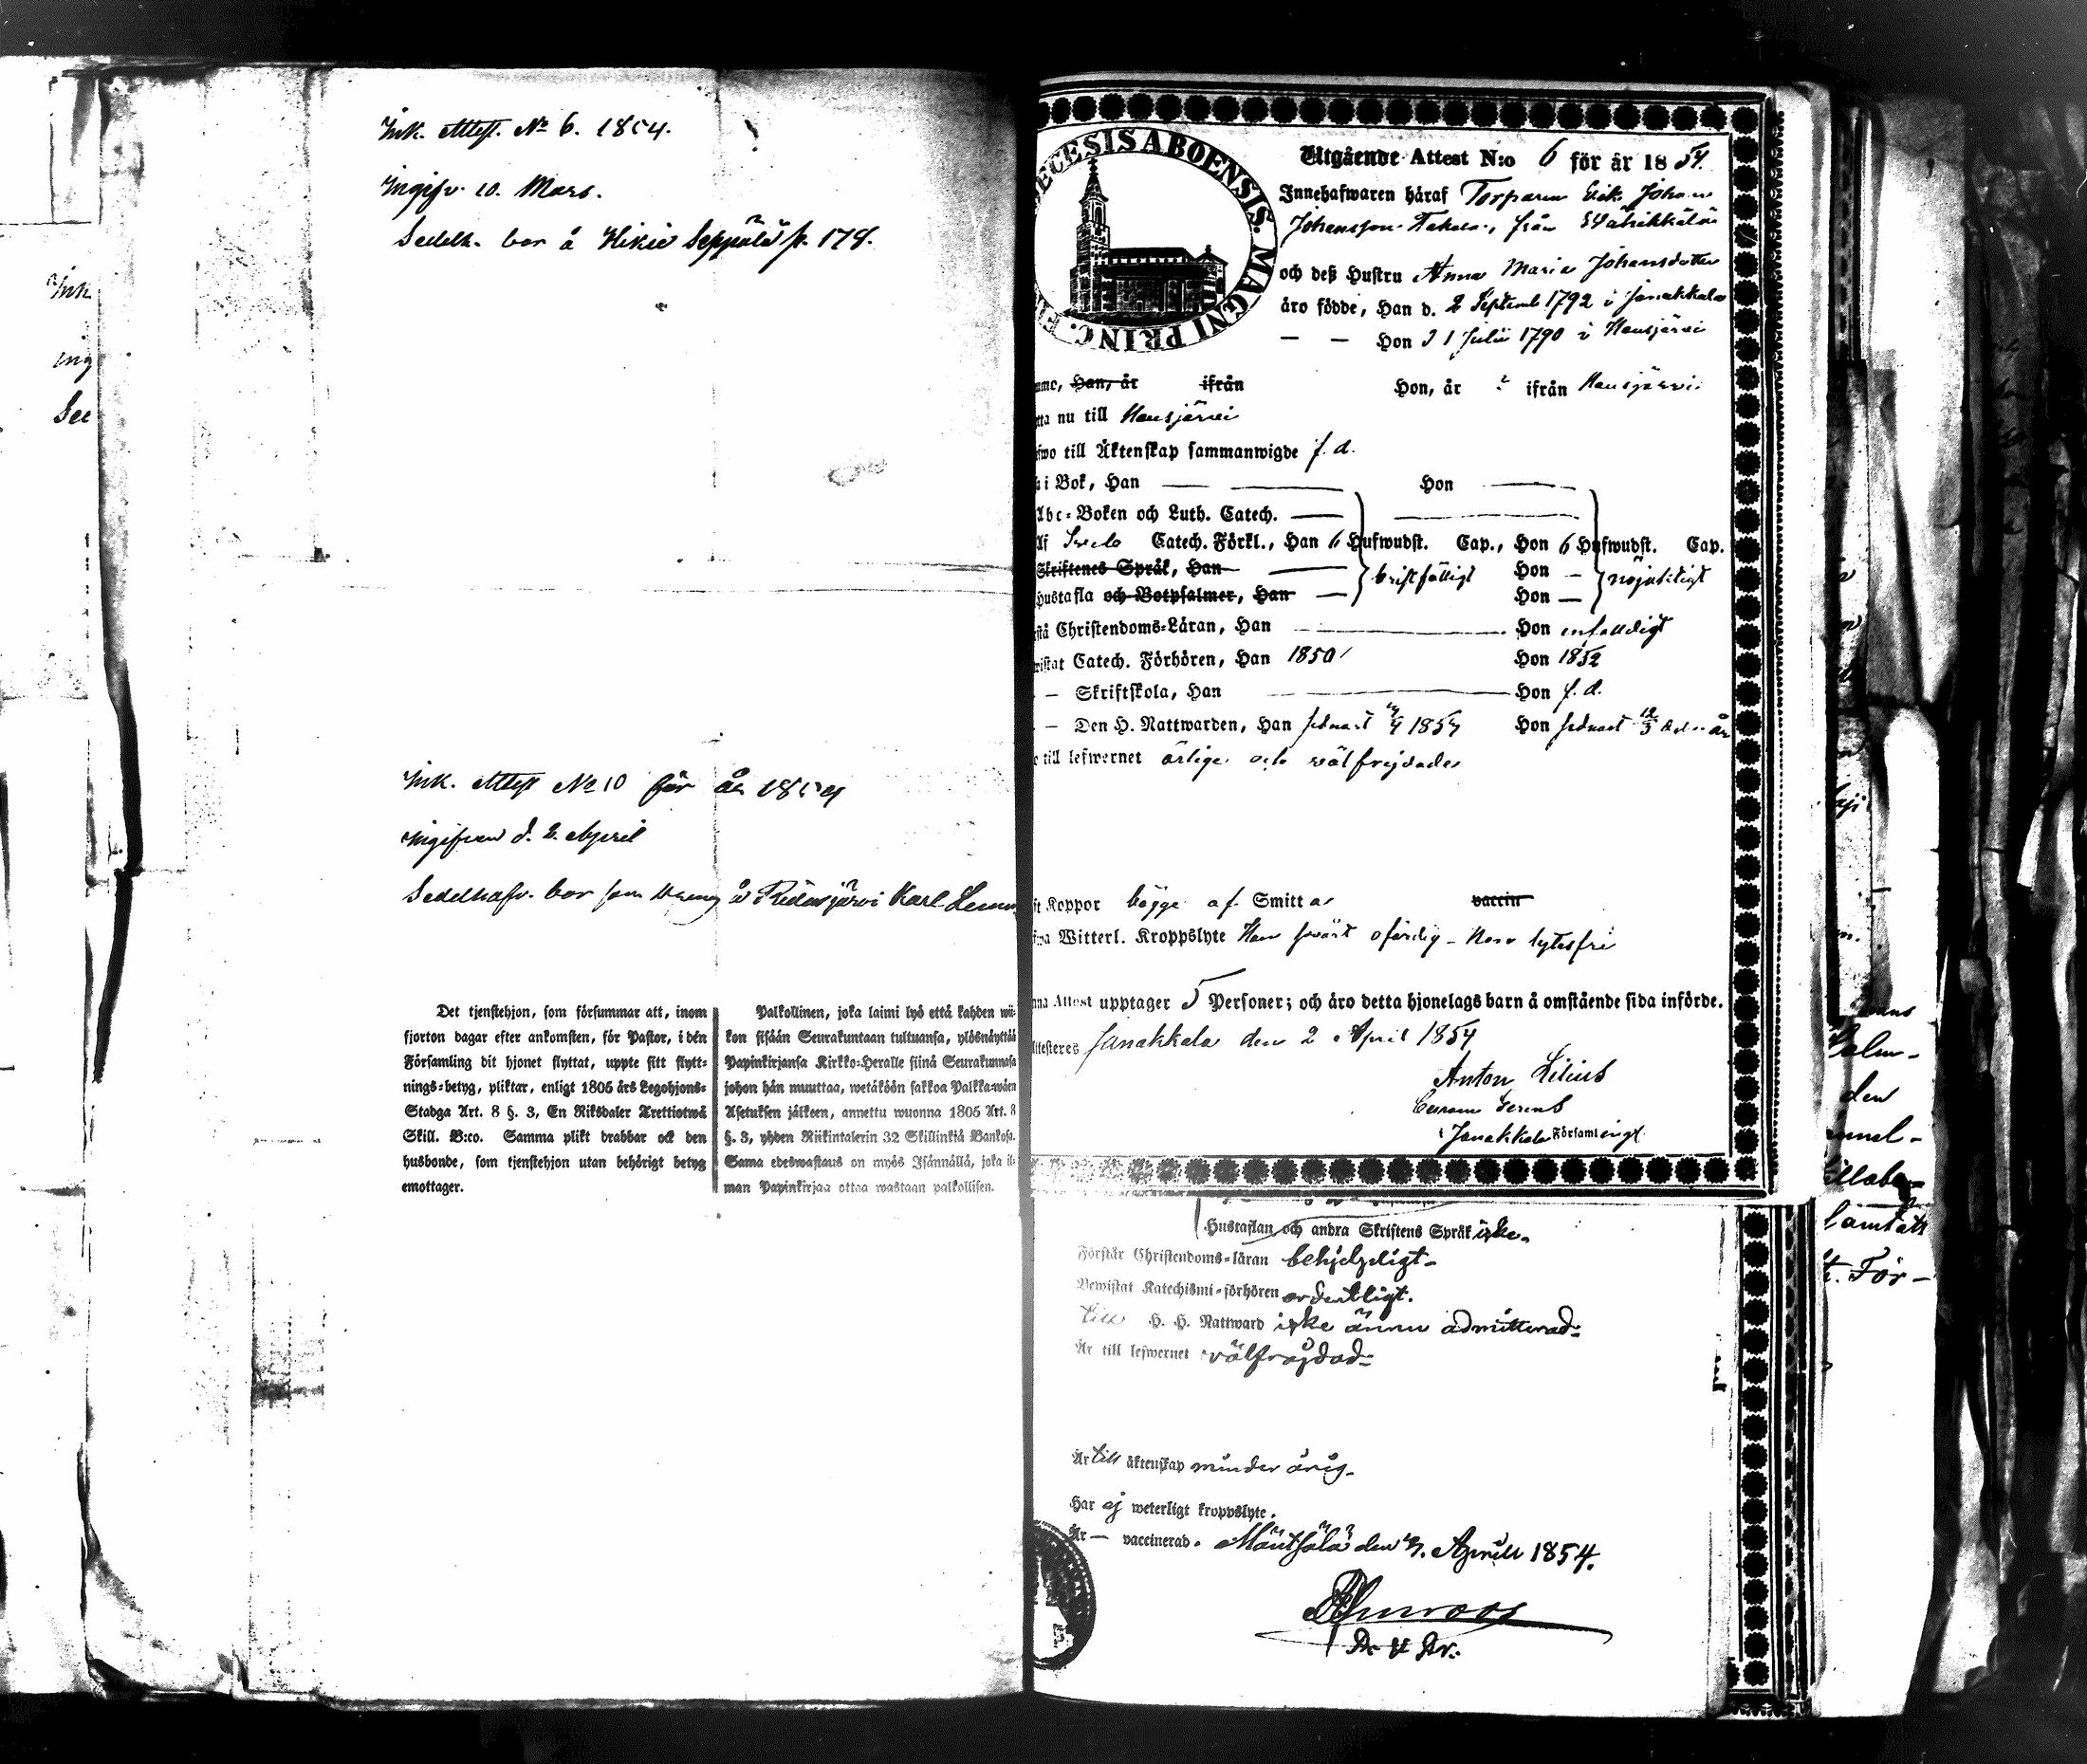 Ink. Attest. No 6. 1854.
Ingifv. 10. Mars.
Sedelh. bor å Hikiä Seppälä p. 178.
Ink.
ing
See
Ink. Attest No 10 för år 1854
Ingifven d. 2. April
Sedelhafv. bor som dreng å Ridasjärvi Karl
Det tjenstehjon, som försummar att, inom
fjorton dagar efter ankomsten, för Pastor, i den
Församling dit hjonet flyttat, uppte sitt flytt-
nings-betyg, pliktar, enligt 1805 års Legohjons-
Stadga Art. 8 §. 3, En Riksdaler Trettiotwå
Skill. B:co. Samma plikt drabbar ock den
husbonde, som tjenstehjon utan behörigt betyg
emottager.
Palkollinen, joka laimi lyö että kahden wii-
kon sisään Seurakuntaan tultuansa, ylösnäyttää
Papinkirjansa Kirkko-Heralle siinä Seurakunnasa
johon hän muuttaa, wetäköön sakkoa Palkka-wäen
Asetuksen jälkeen, annettu wuonna 1805 Art. 8
§. 3, yhden Riikintalerin 32 Skillinkiä Bankosa.
Sama edeswastaus on myös Isännällä, joka il-
man Papinkirjaa ottaa wastaan palkollisen.
ECESIS ABOENSIS. MAGNI PRINC. FI
Utgående Attest N:o 6 för år 1854.
Innehafwaren håraf Torparen Erik Johan
Johansson Takala, från
och deß Hustru Anna Maria Johansdotter
äro födde, Han d. 2 Septemb 1792 i Janakkala
— — Hon d 1 Julii 1790 i Hausjärvi
mme, Han, år ifrån Hon, år ifrån Hausjärvi
tta nu till Hausjärvi
fwo till Äktenskap sammanwigde f. d.
i Bok, Han — — Hon —
Abc-Boken och Luth. Catech. —
Af Svebe Catech. Förkl., Han 6 Hufwudst. Cap., Hon 6 Hufwudst. Cap.
Skriftenes Språk, Han — bristfälligt Hon — nöjaktigt
Hustafla och Botpsalmer, Han — Hon —
stå Christendoms-Läran, Han — Hon enfaldigt
wistat Catech. Förhören, Han 1850 Hon 1852
— Skriftskola, Han — Hon f. d.
— Den H. Nattwarden, Han sednast 1854 Hon sednast 12/3 år
till lefwernet ärlige och välfrejdade
ft Koppor bägge af Smitta vaccin
fwa Witterl. Kroppslyte Han svårt ofärdig - Hon lytesfri
nna Attest upptager 5 Personer; och äro detta hjonelags barn å omstående sida införde.
Attesteres Janakkala den 2 April 1854
Anton Lilius
i Janakkala Församling
Hustaflan och andra Skriftens Språk icke.
Förstår Christendoms-läran behjelpligt-
Bewistat Katechismi-förhören ordentligt.
till H. H. Nattward icke ännu admitterad-
Är till lefwernet välfrejdad-
Är till äktenskap minderårig-
Har ej weterligt kroppslyte.
Är — vaccinerad. Mäntsälä den 3. Aprill 1854.
den
För-